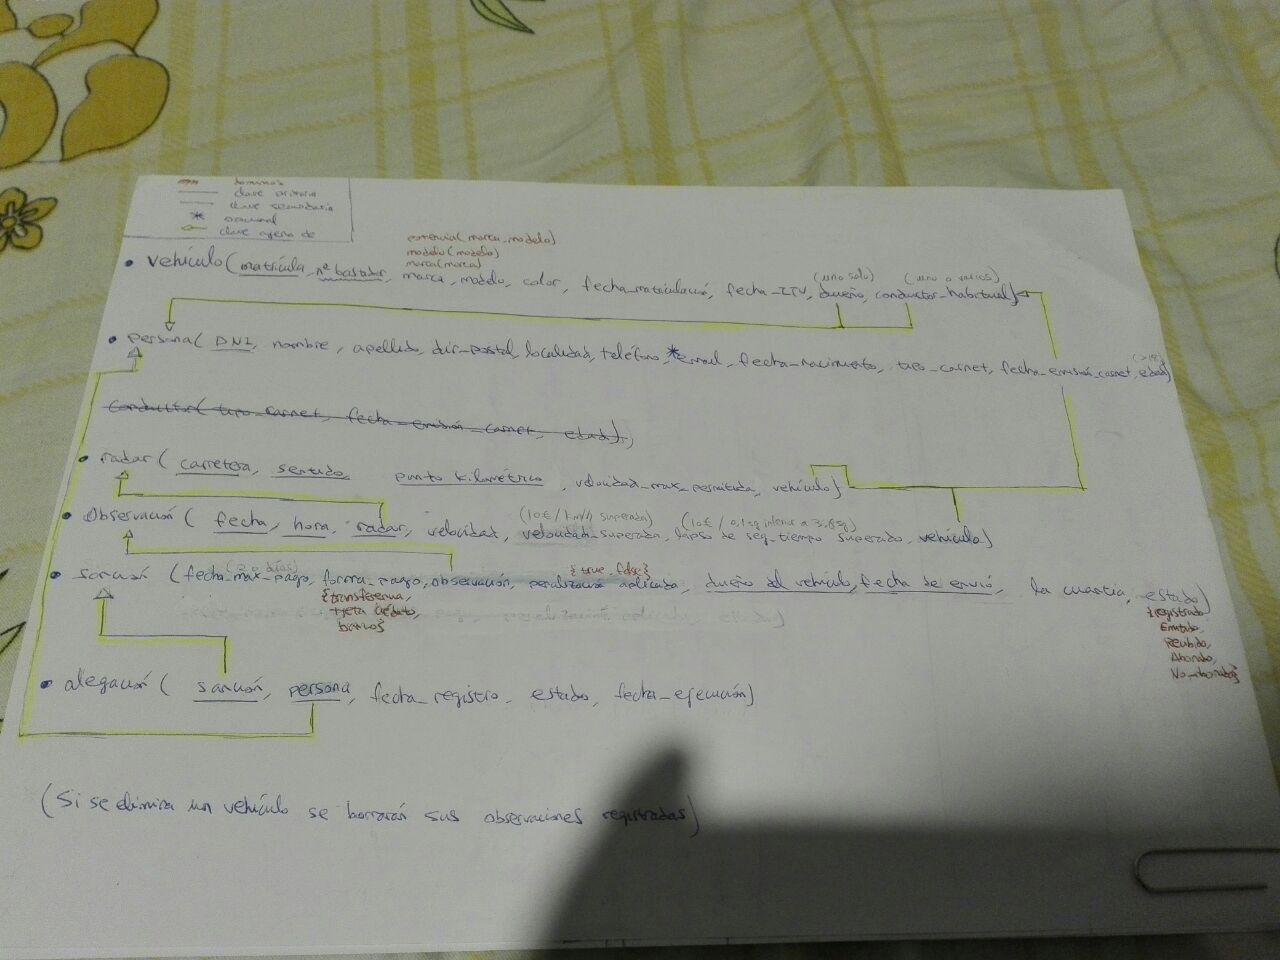 dominios
clave primaria
clave secundaria
* opcional
clave ajena de
potencia(marca, modelo)
modelo(modelo)
marca(marca)
(uno solo) (uno o varios)
• vehículo (matrícula, nº bastidor, marca, modelo, color, fecha_matriculación, fecha_ITV, dueño, conductor_habitual)
(>18)
• persona( DNI, nombre, apellido, dir_postal, localidad, teléfono, *email, fecha_nacimiento, tipo_carnet, fecha_emisión_carnet, edad)
conductor( tipo_carnet, fecha_emisión_carnet, edad);
• radar ( carretera, sentido, punto kilométrico, velocidad_max_permitida, vehículo)
(10€ / km/h superado) (10€ / 0,1sg inferior a 3,6sg)
• Observación ( fecha, hora, radar, velocidad, velocidad_superada, lapso de seg_tiempo superado, vehículo)
(20 días) {true, false}
• sanción (fecha_max_pago, forma_pago, observación, penalización aplicada, dueño del vehículo, fecha de envió, la cuantia, estado)
{transferencia,
tarjeta crédito,
banco}
{registrado,
Emitido,
Recibido,
Abonado,
No_abonado}
• alegación ( sanción, persona, fecha_registro, estado, fecha_ejecución)
(Si se elimina un vehículo se borrarán sus observaciones registradas)